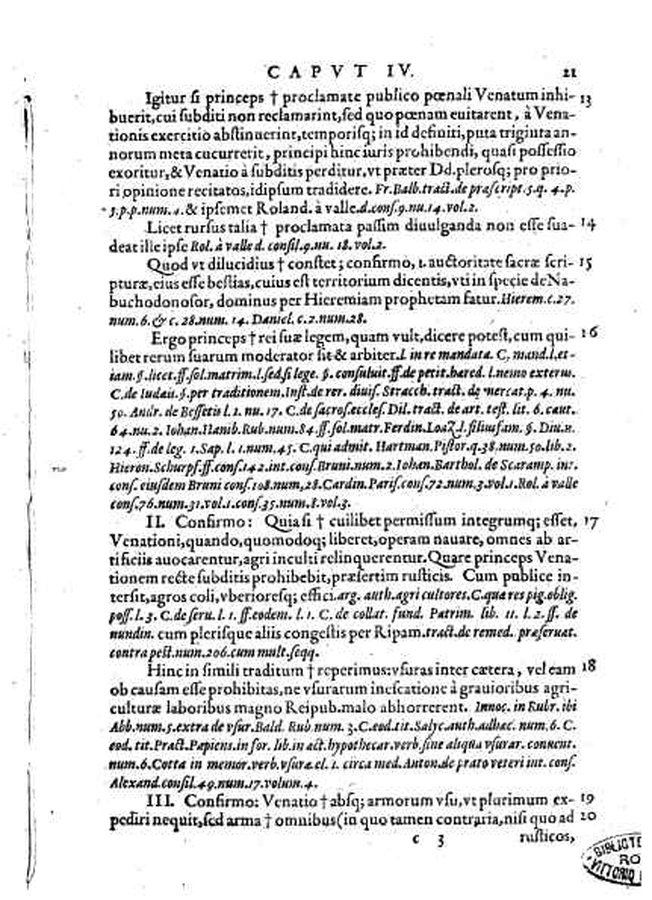 CAPVT IV. 21
Igitur si princeps † proclamate publico pœnali Venatum inhi- 13
buerit, cui subditi non reclamarint, sed quo pœnam euitarent, à Vena-
tionis exercitio abstinuerint, temporisq; in id definiti, puta triginta an-
norum meta cucurrerit, principi hinc iuris prohibendi, quasi possessio
exoritur, & Venatio à subditis perditur, vt præter Dd. plerosq; pro prio-
ri opinione recitatos, idipsum tradidere. Fr. Balb. tract. de præscript. 5. q. 4. p.
5. p. p. num. 4. & ipsemet Roland. à valle. d. cons. 9. nu. 14. vol. 2.
Licet rursus talia † proclamata passim diuulganda non esse sua- 14
deat ille ipse Rol. à valle d. consil. 9. nu. 18. vol. 2.
Quod vt dilucidius † constet; confirmo, 1. auctoritate sacræ scri- 15
pturæ, eius esse bestias, cuius est territorium dicentis, vti in specie de Na-
buchodonosor, dominus per Hieremiam prophetam fatur. Hierem. c. 27.
num. 6. & c. 28. num. 14. Daniel. c. 2. num. 28.
Ergo princeps † rei suæ legem, quam vult, dicere potest, cum qui- 16
libet rerum suarum moderator sit & arbiter. l. in re mandata. C. mand. l. et-
iam. §. licet. ff. sol. matrim. l. sed si lege. §. consuluit. ff. de petit. hared. l. nemo exterus.
C. de Iudæis. §. per traditionem. Inst. de rer. diuis. Stracch. tract. de mercat. p. 4. nu.
50. Andr. de Bessetis l. 2. nu. 17. C. de sacros. eccles. Dil. tract. de art. test. lit. 6. caut.
64. nu. 2. Iohan. Hamb. Rub. num. 84. ff. sol. matr. Ferdin. Loaz. l. filiusfam. §. Diui. n.
124. ff. de leg. 1. Sap. l. 1. num. 45. C. qui admit. Hartman. Pistor. q. 38. num. 50. lib. 2.
Hieron. Schurpf. ff. cons. 142. int. cons. Bruni. num. 2. Iohan. Barthol. de Scaramp. int.
cons. eiusdem Bruni cons. 108. num, 28. Cardin. Paris. cons. 72. num. 3. vol. 1. Rol. à valle
cons. 76. num. 31. vol. 1. cons. 35. num. 8. vol. 3.
II. Confirmo: Quia si † cuilibet permissum integrumq; esset, 17
Venationi, quando, quomodoq; liberet, operam nauare, omnes ab ar-
tificiis auocarentur, agri inculti relinquerentur. Quare princeps Vena-
tionem recte subditis prohibebit, præsertim rusticis. Cum publice in-
tersit, agros coli, vberioresq; effici. arg. auth. agricultores. C. quæ res pig. oblig.
poss. l. 3. C. de seru. l. 1. ff. eodem. l. 1. C. de collat. fund. Patrim. lib. 11. l. 2. ff. de
nundin. cum plerisque aliis congestis per Ripam. tract. de remed. præseruat.
contra pest. num. 206. cum mult. seqq.
Hinc in simili traditum † reperimus: vsuras inter cætera, vel eam 18
ob causam esse prohibitas, ne vsurarum inescatione à grauioribus agri-
culturæ laboribus magno Reipub. malo abhorrerent. Innoc. in Rubr. ibi
Abb. num. 5. extra de vsur. Bald. Rub. num. 3. C. eod. tit. Salyc. auth. ad hæc. num. 6. C.
eod. tit. Pract. Papiens. in for. lib. in act. hypothecar. verb. sine aliqua vsurar. conuent.
num. 6. Cotta in memor. verb. vsuræ. el. 1. circa med. Anton. de prato veteri int. cons.
Alexand. consil. 49. num. 17. volum. 4.
III. Confirmo: Venatio † absq; armorum vsu, vt plurimum ex- 19
pediri nequit, sed arma † omnibus (in quo tamen contraria, nisi quo ad 20
c 3 rusticos,
BIBLIOTE
RO
VITTORIO